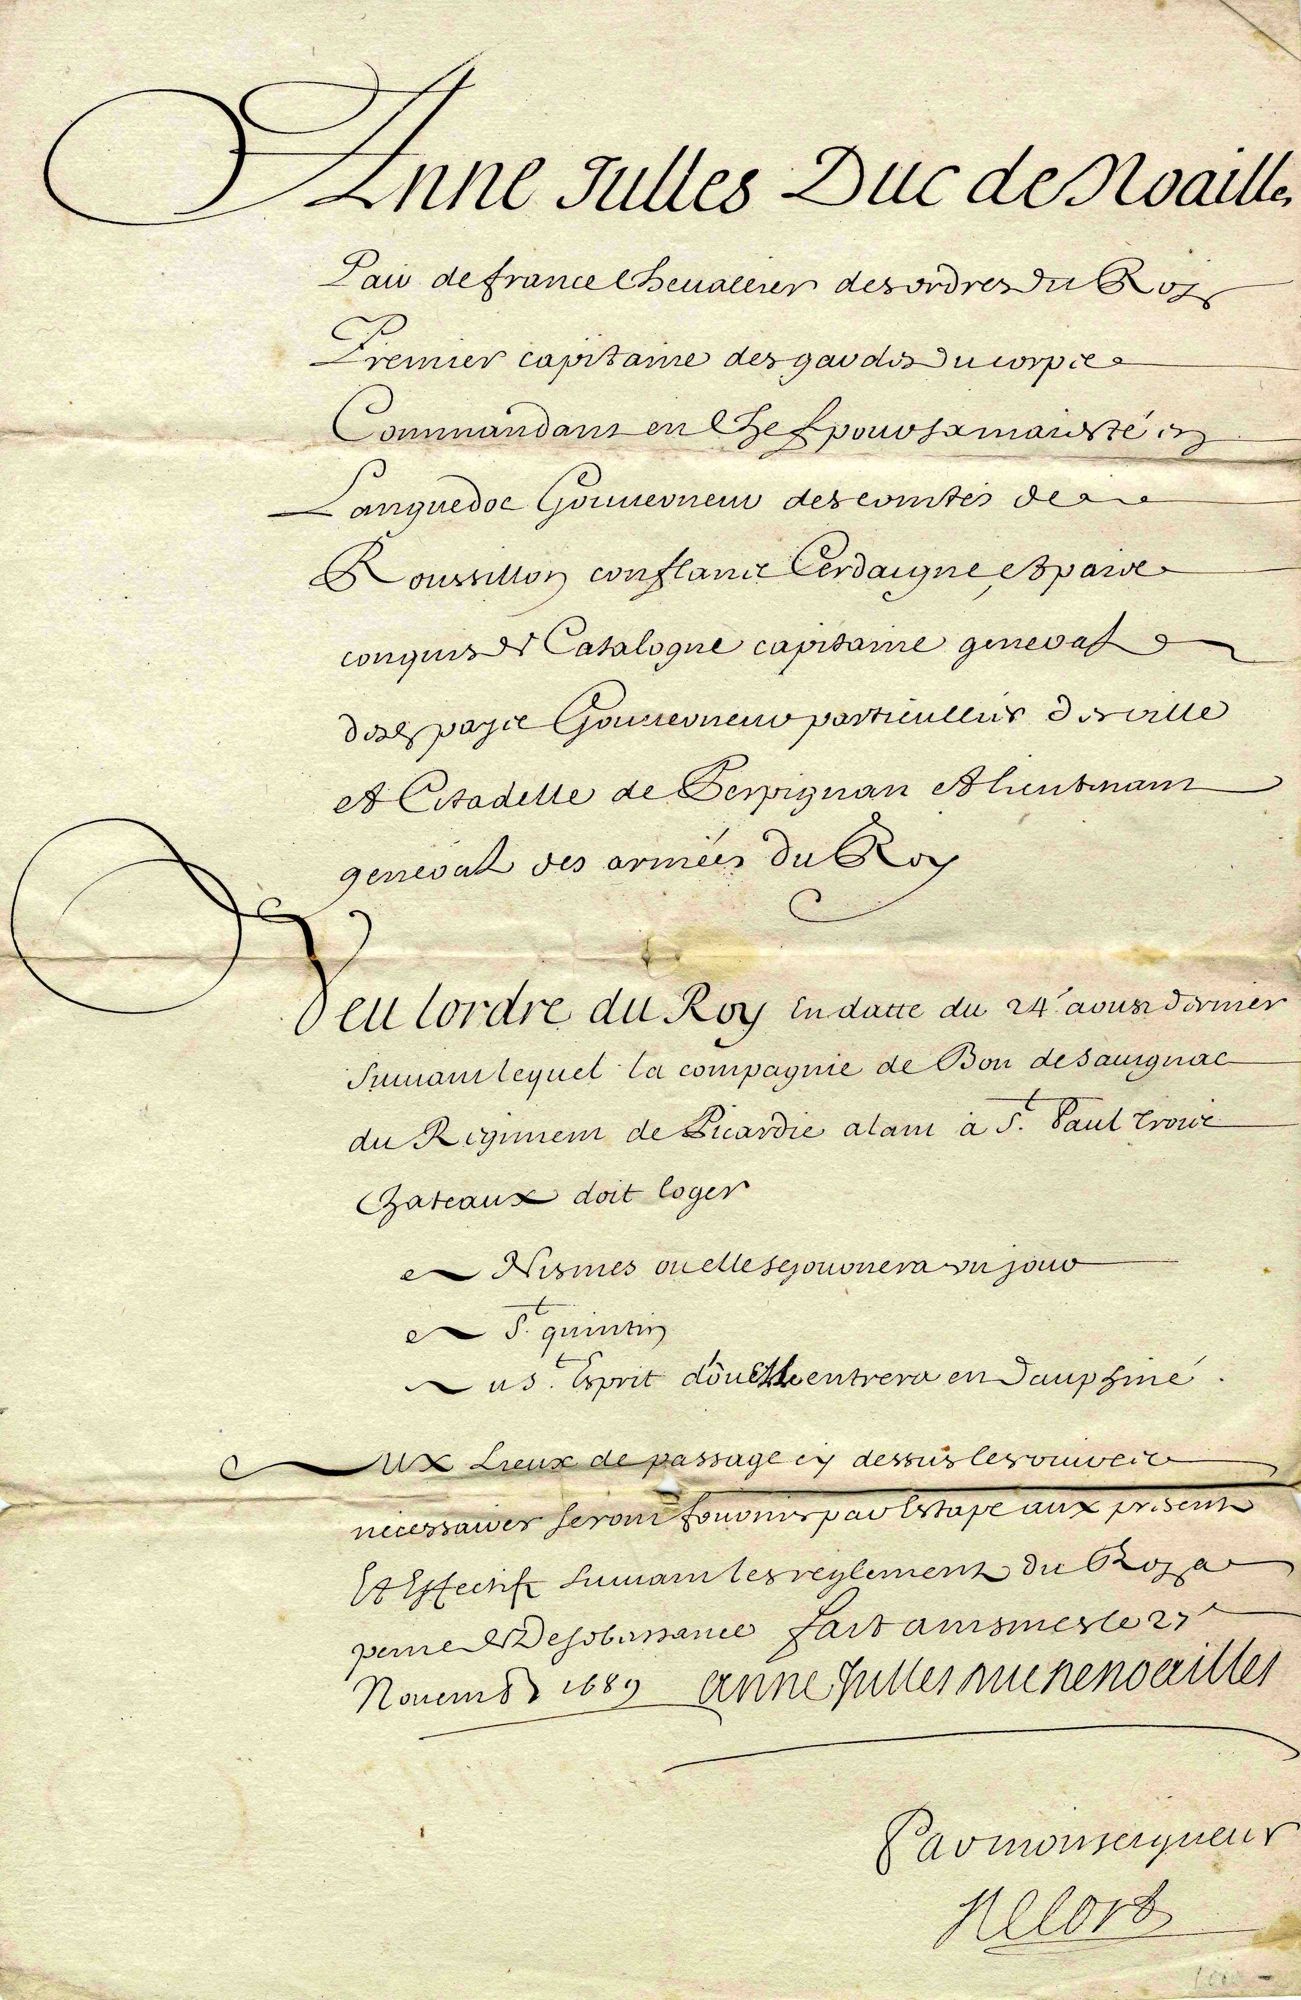 Anne Julles Duc de Noailles
Pair de france Chevallier des ordres du Roy
Premier capitaine des gardes du corps
Commandant en Chef pour sa maiesté en
Languedoc Gouverneur des comtés de
Roussillon conflant Cerdaigne, et païs
conquis de Catalogne capitaine general
desd pays Gouverneur particullier des ville
et Citadelle de Perpignan et lieutenant
general des armées du Roy
Veu lordre du Roy En datte du 24e aoust dernier
suivant lequel la compagnie de Bon de Sauignac
du Regiment de Picardie alant à St. Paul trois
Chateaux doit loger
A Nismes ou elle sejournera un jour
A St. quintin
Au St. Esprit d'ou Elle entrera en Dauphiné.
Aux Lieux de passage cy dessus les vivres
necessaires seront fournis par Estape aux presents
Et Effectifs suivant les reglements du Roy a
peine de Desobeissance fait a nismes le 27e
Novemb 1689 anne Julles duc de noailles
Par monseigneur